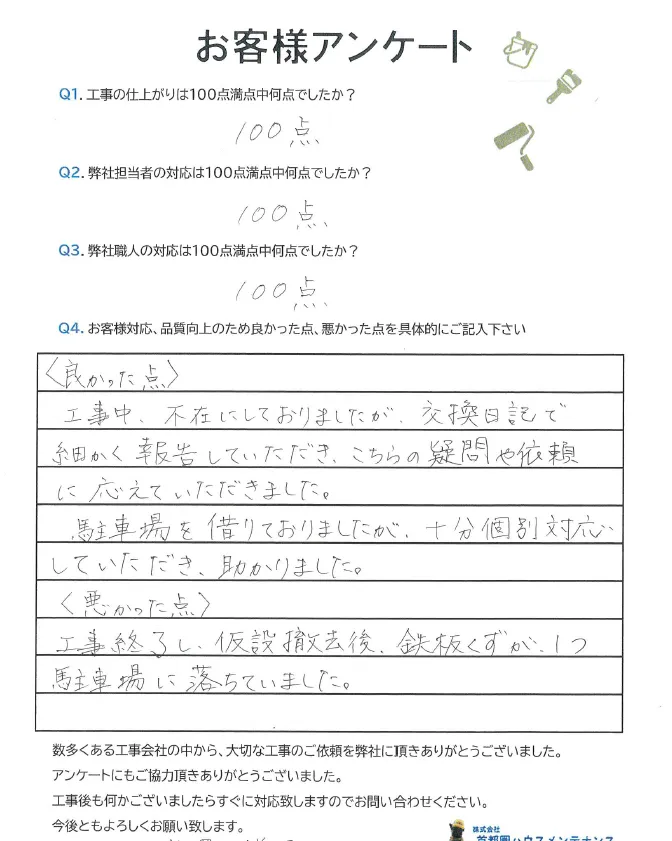 お客様アンケート
Q1. 工事の仕上がりは100点満点中何点でしたか？
100点
Q2. 弊社担当者の対応は100点満点中何点でしたか？
100点
Q3. 弊社職人の対応は100点満点中何点でしたか？
100点
Q4. お客様対応、品質向上のため良かった点、悪かった点を具体的にご記入下さい
〈良かった点〉
工事中、不在にしておりましたが、交換日記で
細かく報告していただき、こちらの疑問や依頼
に応えていただきました。
駐車場を借りておりましたが、十分個別対応
していただき、助かりました。
〈悪かった点〉
工事終了し、仮設撤去後、鉄板くずが、1つ
駐車場に落ちていました。
数多くある工事会社の中から、大切な工事のご依頼を弊社に頂きありがとうございました。
アンケートにもご協力頂きありがとうございました。
工事後も何かございましたらすぐに対応致しますのでお問い合わせください。
今後ともよろしくお願い致します。
株式会社
首都圏ハウスメンテナンス